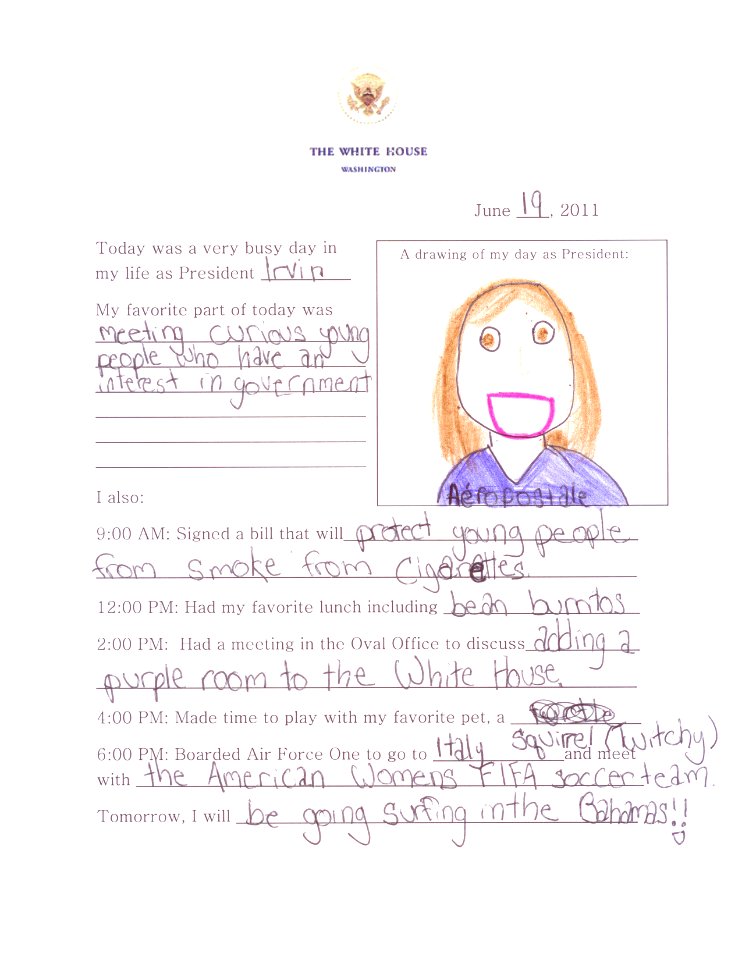 THE WHITE HOUSE
WASHINGTON
June 19, 2011
Today was a very busy day in
my life as President Irvin
My favorite part of today was
meeting curious young
people who have an
interest in government
A drawing of my day as President:
Aéropostale
I also:
9:00 AM: Signed a bill that will protect young people
from smoke from cigarettes.
12:00 PM: Had my favorite lunch including bean burritos
2:00 PM: Had a meeting in the Oval Office to discuss adding a
purple room to the White House.
4:00 PM: Made time to play with my favorite pet, a
squirrel (Twitchy)
6:00 PM: Boarded Air Force One to go to Italy and meet
with the American Womens FIFA soccer team.
Tomorrow, I will be going surfing in the Bahamas!!